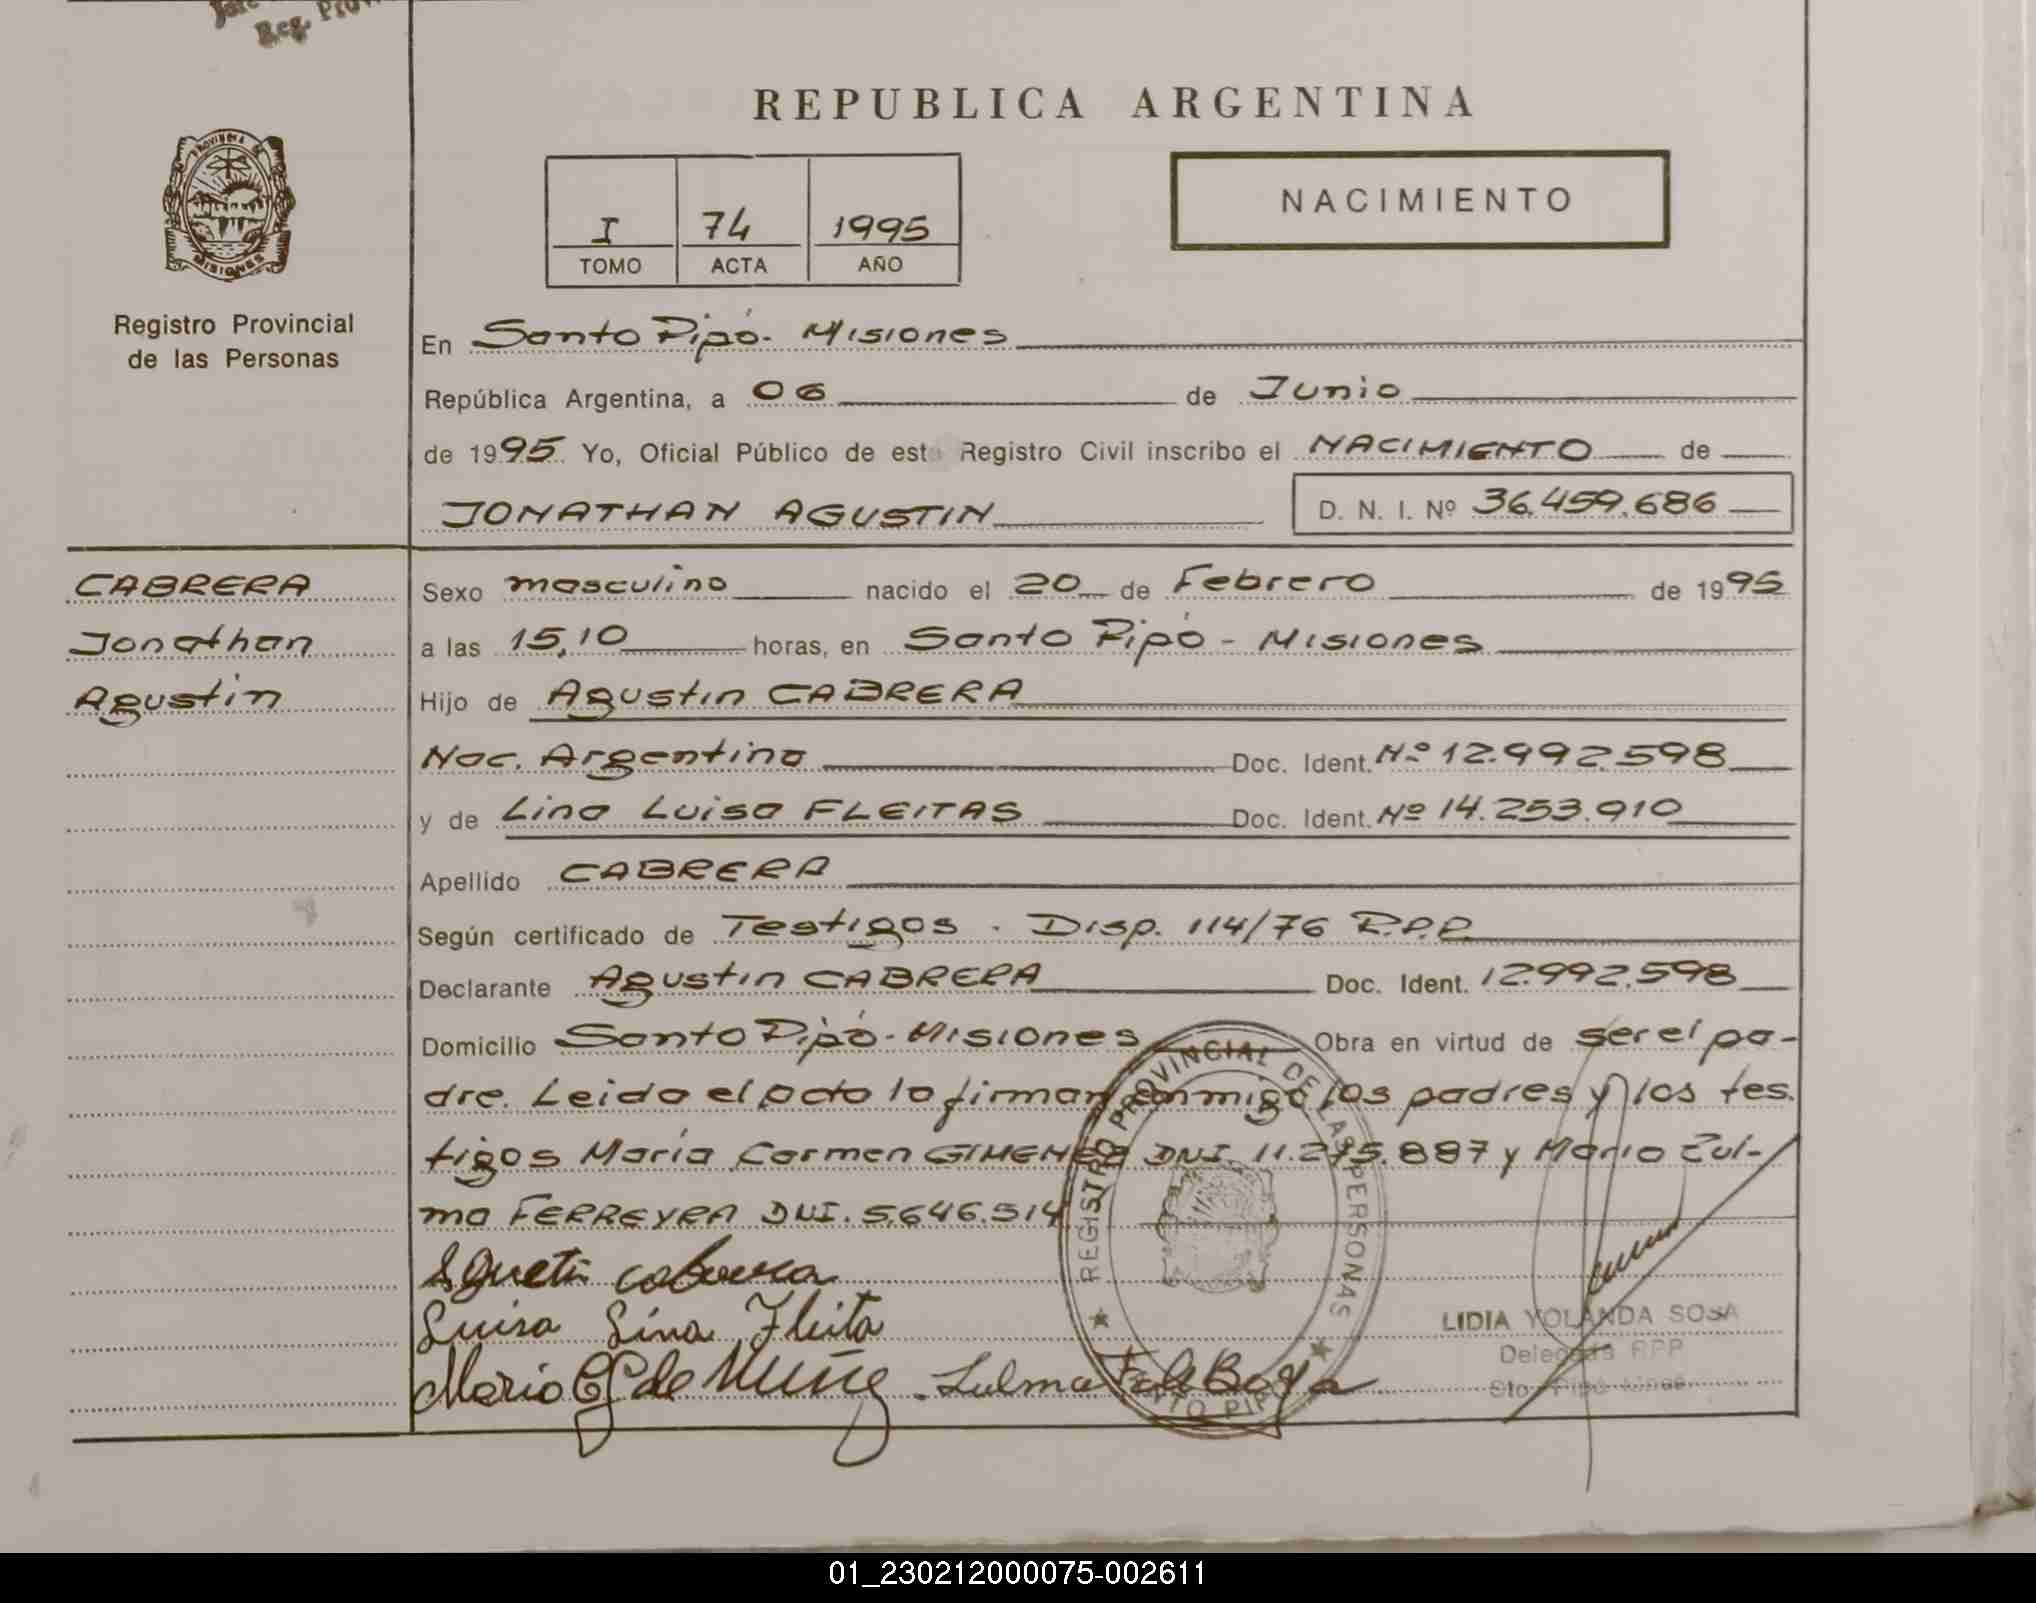 Reg. Prov
REPUBLICA ARGENTINA
PROVINCIA DE
MISIONES
I 74 1995
TOMO ACTA AÑO
NACIMIENTO
Registro Provincial
de las Personas
En Santo Pipó - Misiones
República Argentina, a 06 de Junio
de 1995 Yo, Oficial Público de est Registro Civil inscribo el NACIMIENTO de
JONATHAN AGUSTIN D. N. I. Nº 36.459.686
CABRERA
Jonathan
Agustin
Sexo masculino nacido el 20 de Febrero de 1995
a las 15,10 horas, en Santo Pipó - Misiones
Hijo de Agustin CABRERA
Nac. Argentina Doc. Ident. Nº 12.992.598
y de Lina Luisa FLEITAS Doc. Ident. Nº 14.253.910
Apellido CABRERA
Según certificado de Testigos - Disp. 114/76 R.P.P.
Declarante Agustin CABRERA Doc. Ident. 12.992.598
Domicilio Santo Pipó - Misiones Obra en virtud de ser el pa-
dre. Leido el acto lo firman conmigo los padres y los tes.
tigos María Carmen GIMENEZ DNI. 11.275.887 y Maria Zul-
ma FERREYRA DNI. 5.646.514
Agustin cabrera
Luisa Lina Fleita
Maria G de Muñe Zulma F de Boga
REGISTRO PROVINCIAL DE LAS PERSONAS
SANTO PIPO
LIDIA YOLANDA SOSA
Delegada RPP
Sto. Pipó Mnes.
01_230212000075-002611